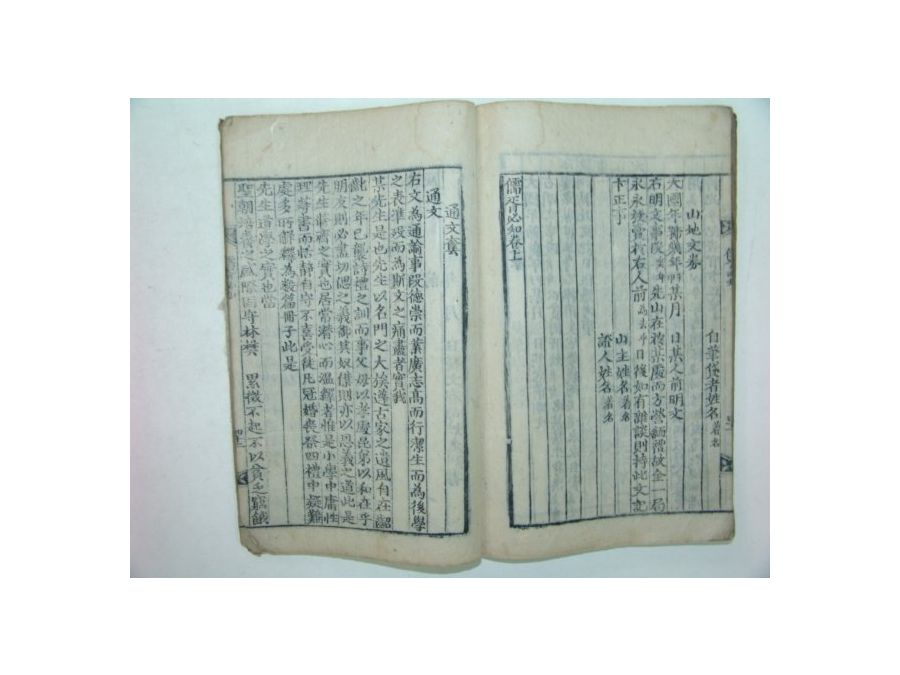 自筆賃者姓名著名
山地文券
大國年號幾年 某月 日某人前明文
右明文事段 先山在於某處而方營緬禮故金一局
永永後賣於右人前 日後如有雜談則持此文記
卞正事
山主姓名著名
證人姓名著名
儒胥必知卷上
通文套
通文
右文為通諭事段德崇而業廣志高而行潔生而為後學
之表準歿而為斯文之痛盡者實我
某先生是也先生以名門之大族遵古家之遺風自在齠
齔之年已襲詩禮之訓而事父母以孝處昆弟以和在乎
朋友則必盡切偲之義御其奴僕則亦以恩義之道此是
先生莊齊之實也居常潜心而溫繹者惟是小學中庸性
理等書而恬靜自守不喜受徒凡冠婚喪祭四禮中疑難
處多所詳釋為數篇冊子此是
先生道學之實也當
聖朝 之盛際固守林樊 累徵不起不以貧乏窮餓